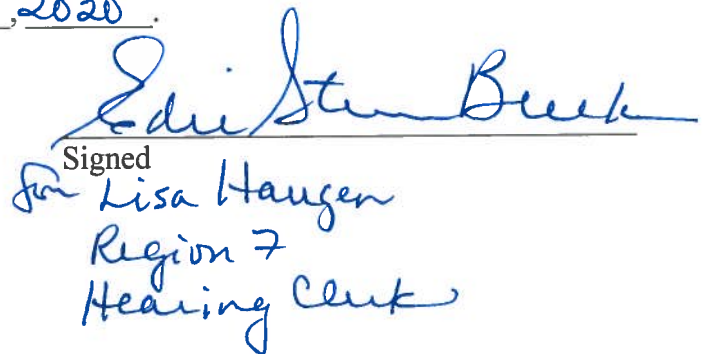 , 2020 .
Edie
Signed
for Lisa Haugen
Region 7
Hearing Clerk